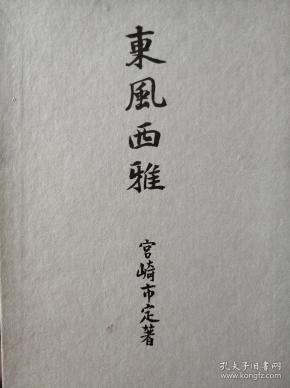 東風西雅
宮崎市定著
孔夫子旧书网